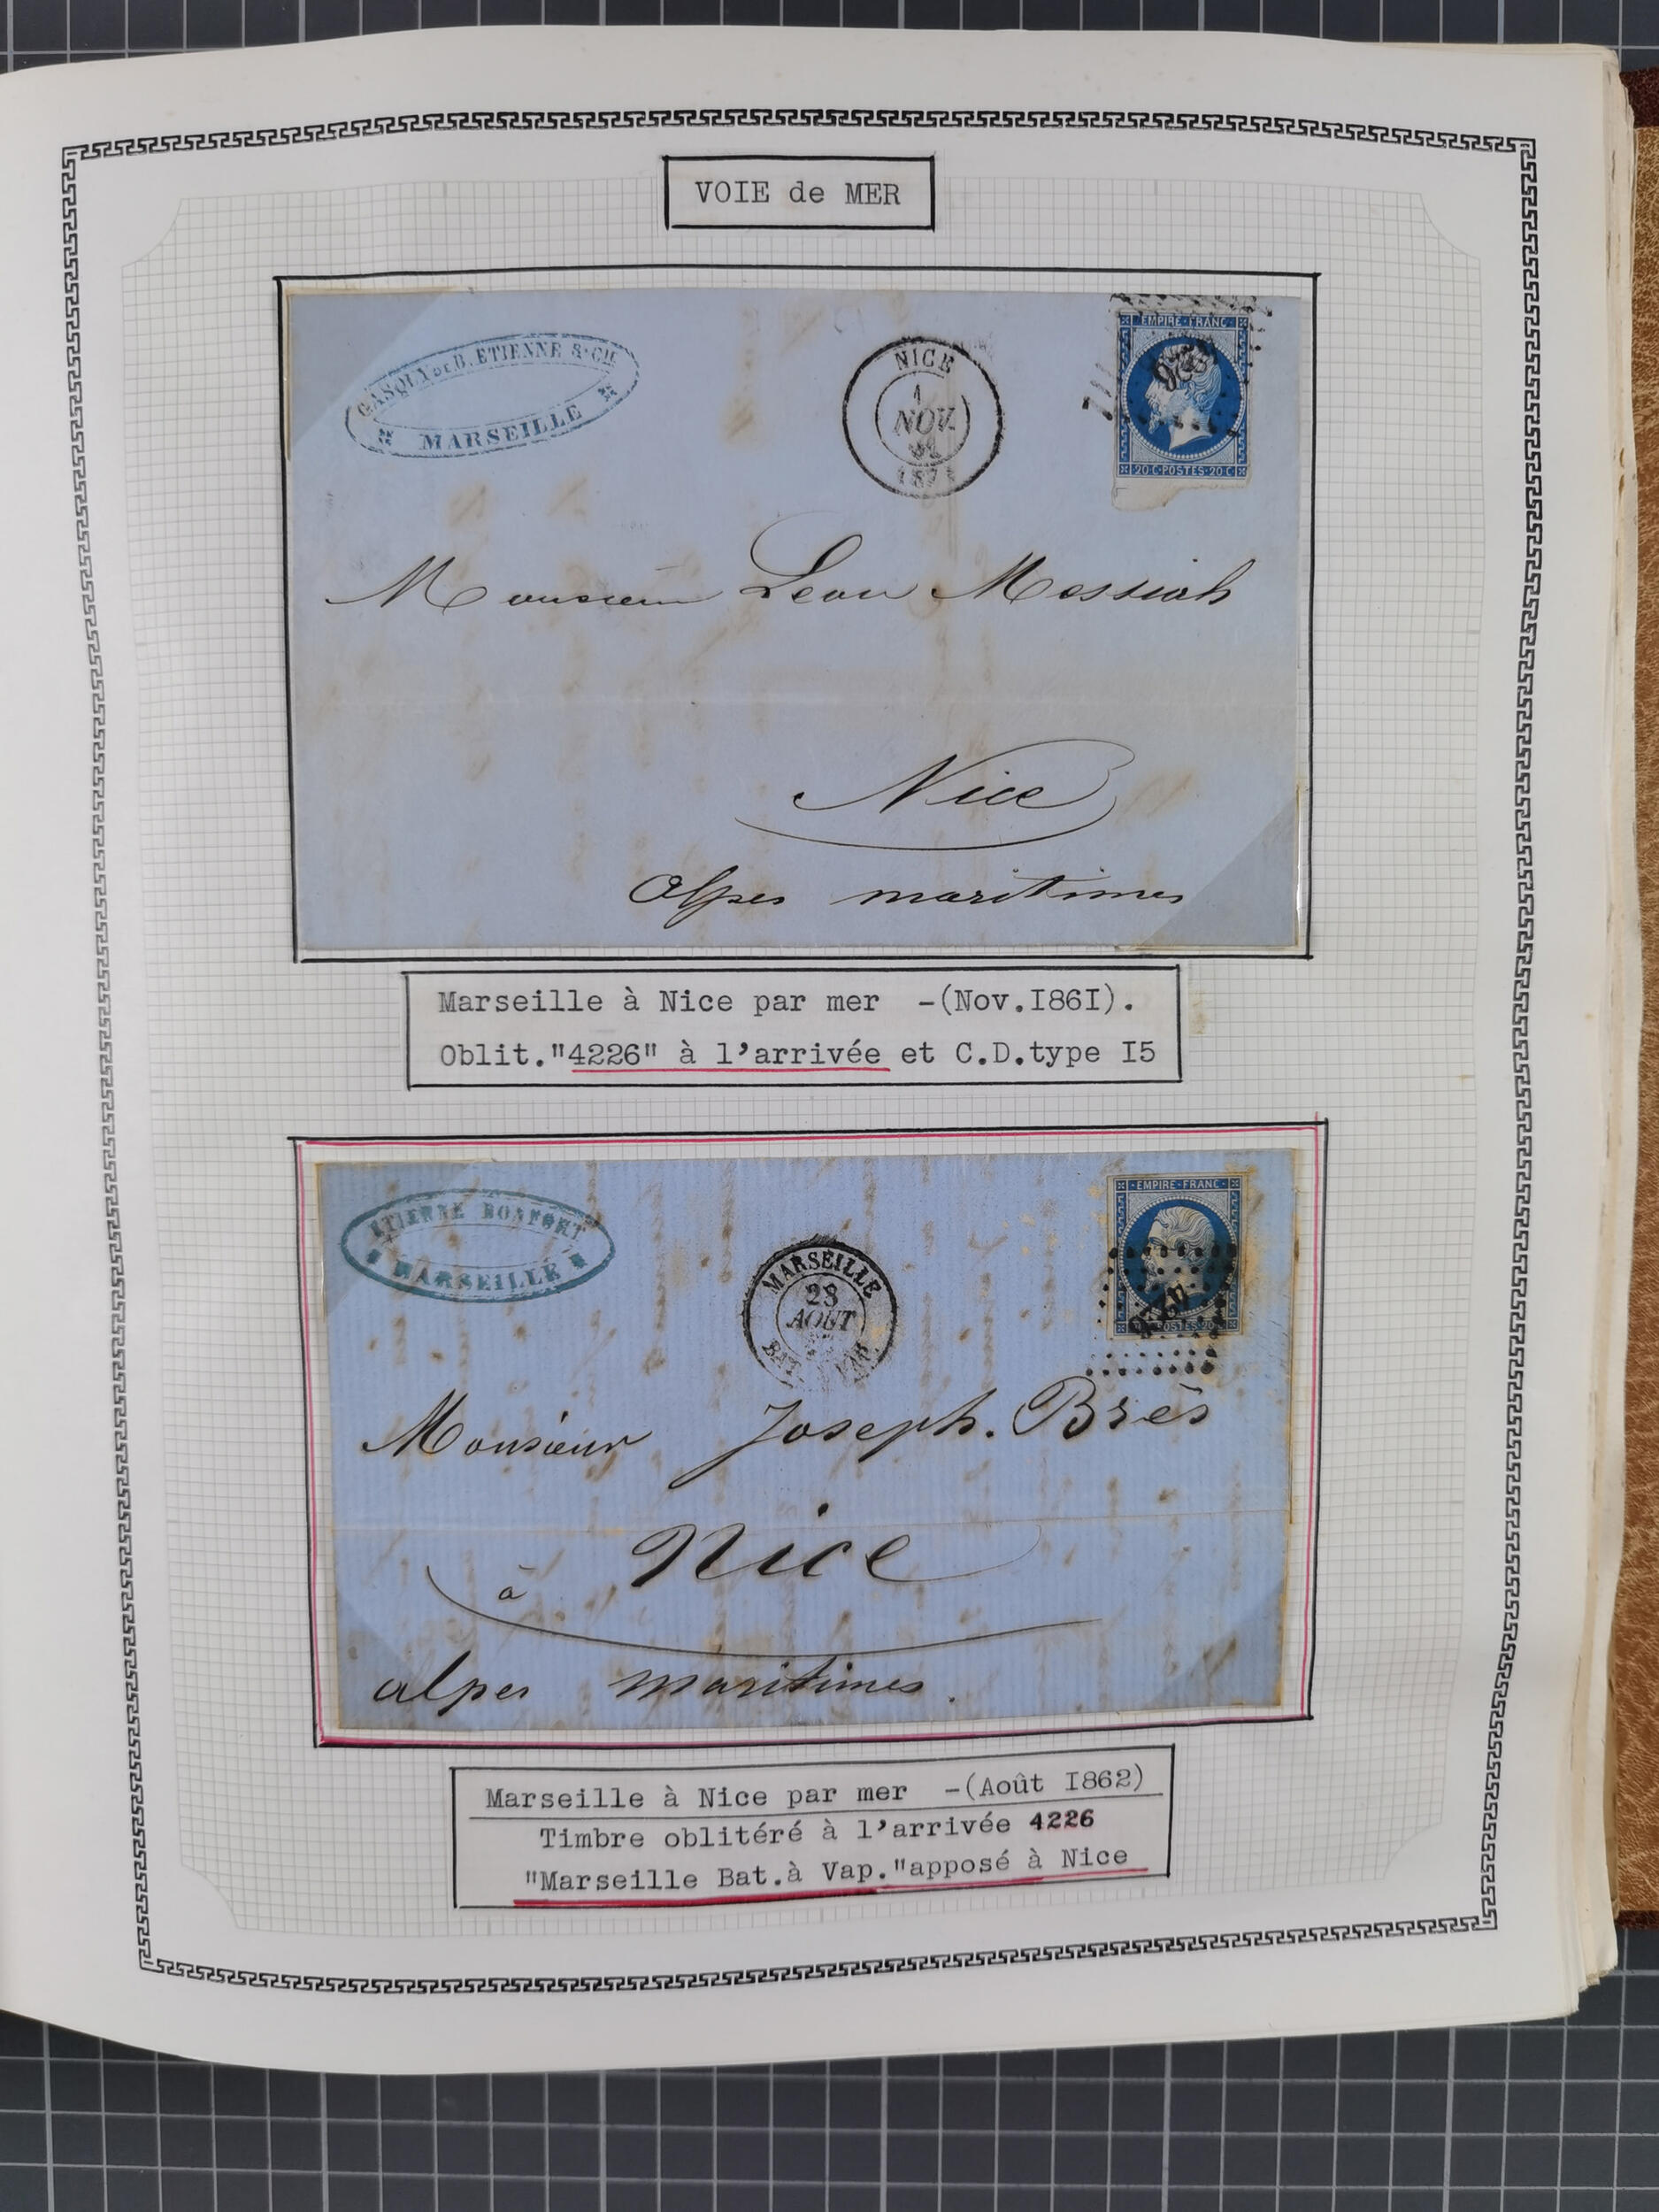 VOIE de MER
GASQUY DE B. ETIENNE & CIE
MARSEILLE
NICE
1
NOV.
EMPIRE·FRANC
20 C·POSTES·20 C
Monsieur Leon Messiah
Nice
Alpes maritimes
Marseille à Nice par mer -(Nov.I86I).
Oblit."4226" à l'arrivée et C.D.type I5
ETIENNE BONFORT
MARSEILLE
MARSEILLE
28
AOUT
EMPIRE·FRANC
Monsieur Joseph. Brès
à Nice
alpes maritimes.
Marseille à Nice par mer -(Août I862)
Timbre oblitéré à l'arrivée 4226
"Marseille Bat.à Vap."apposé à Nice